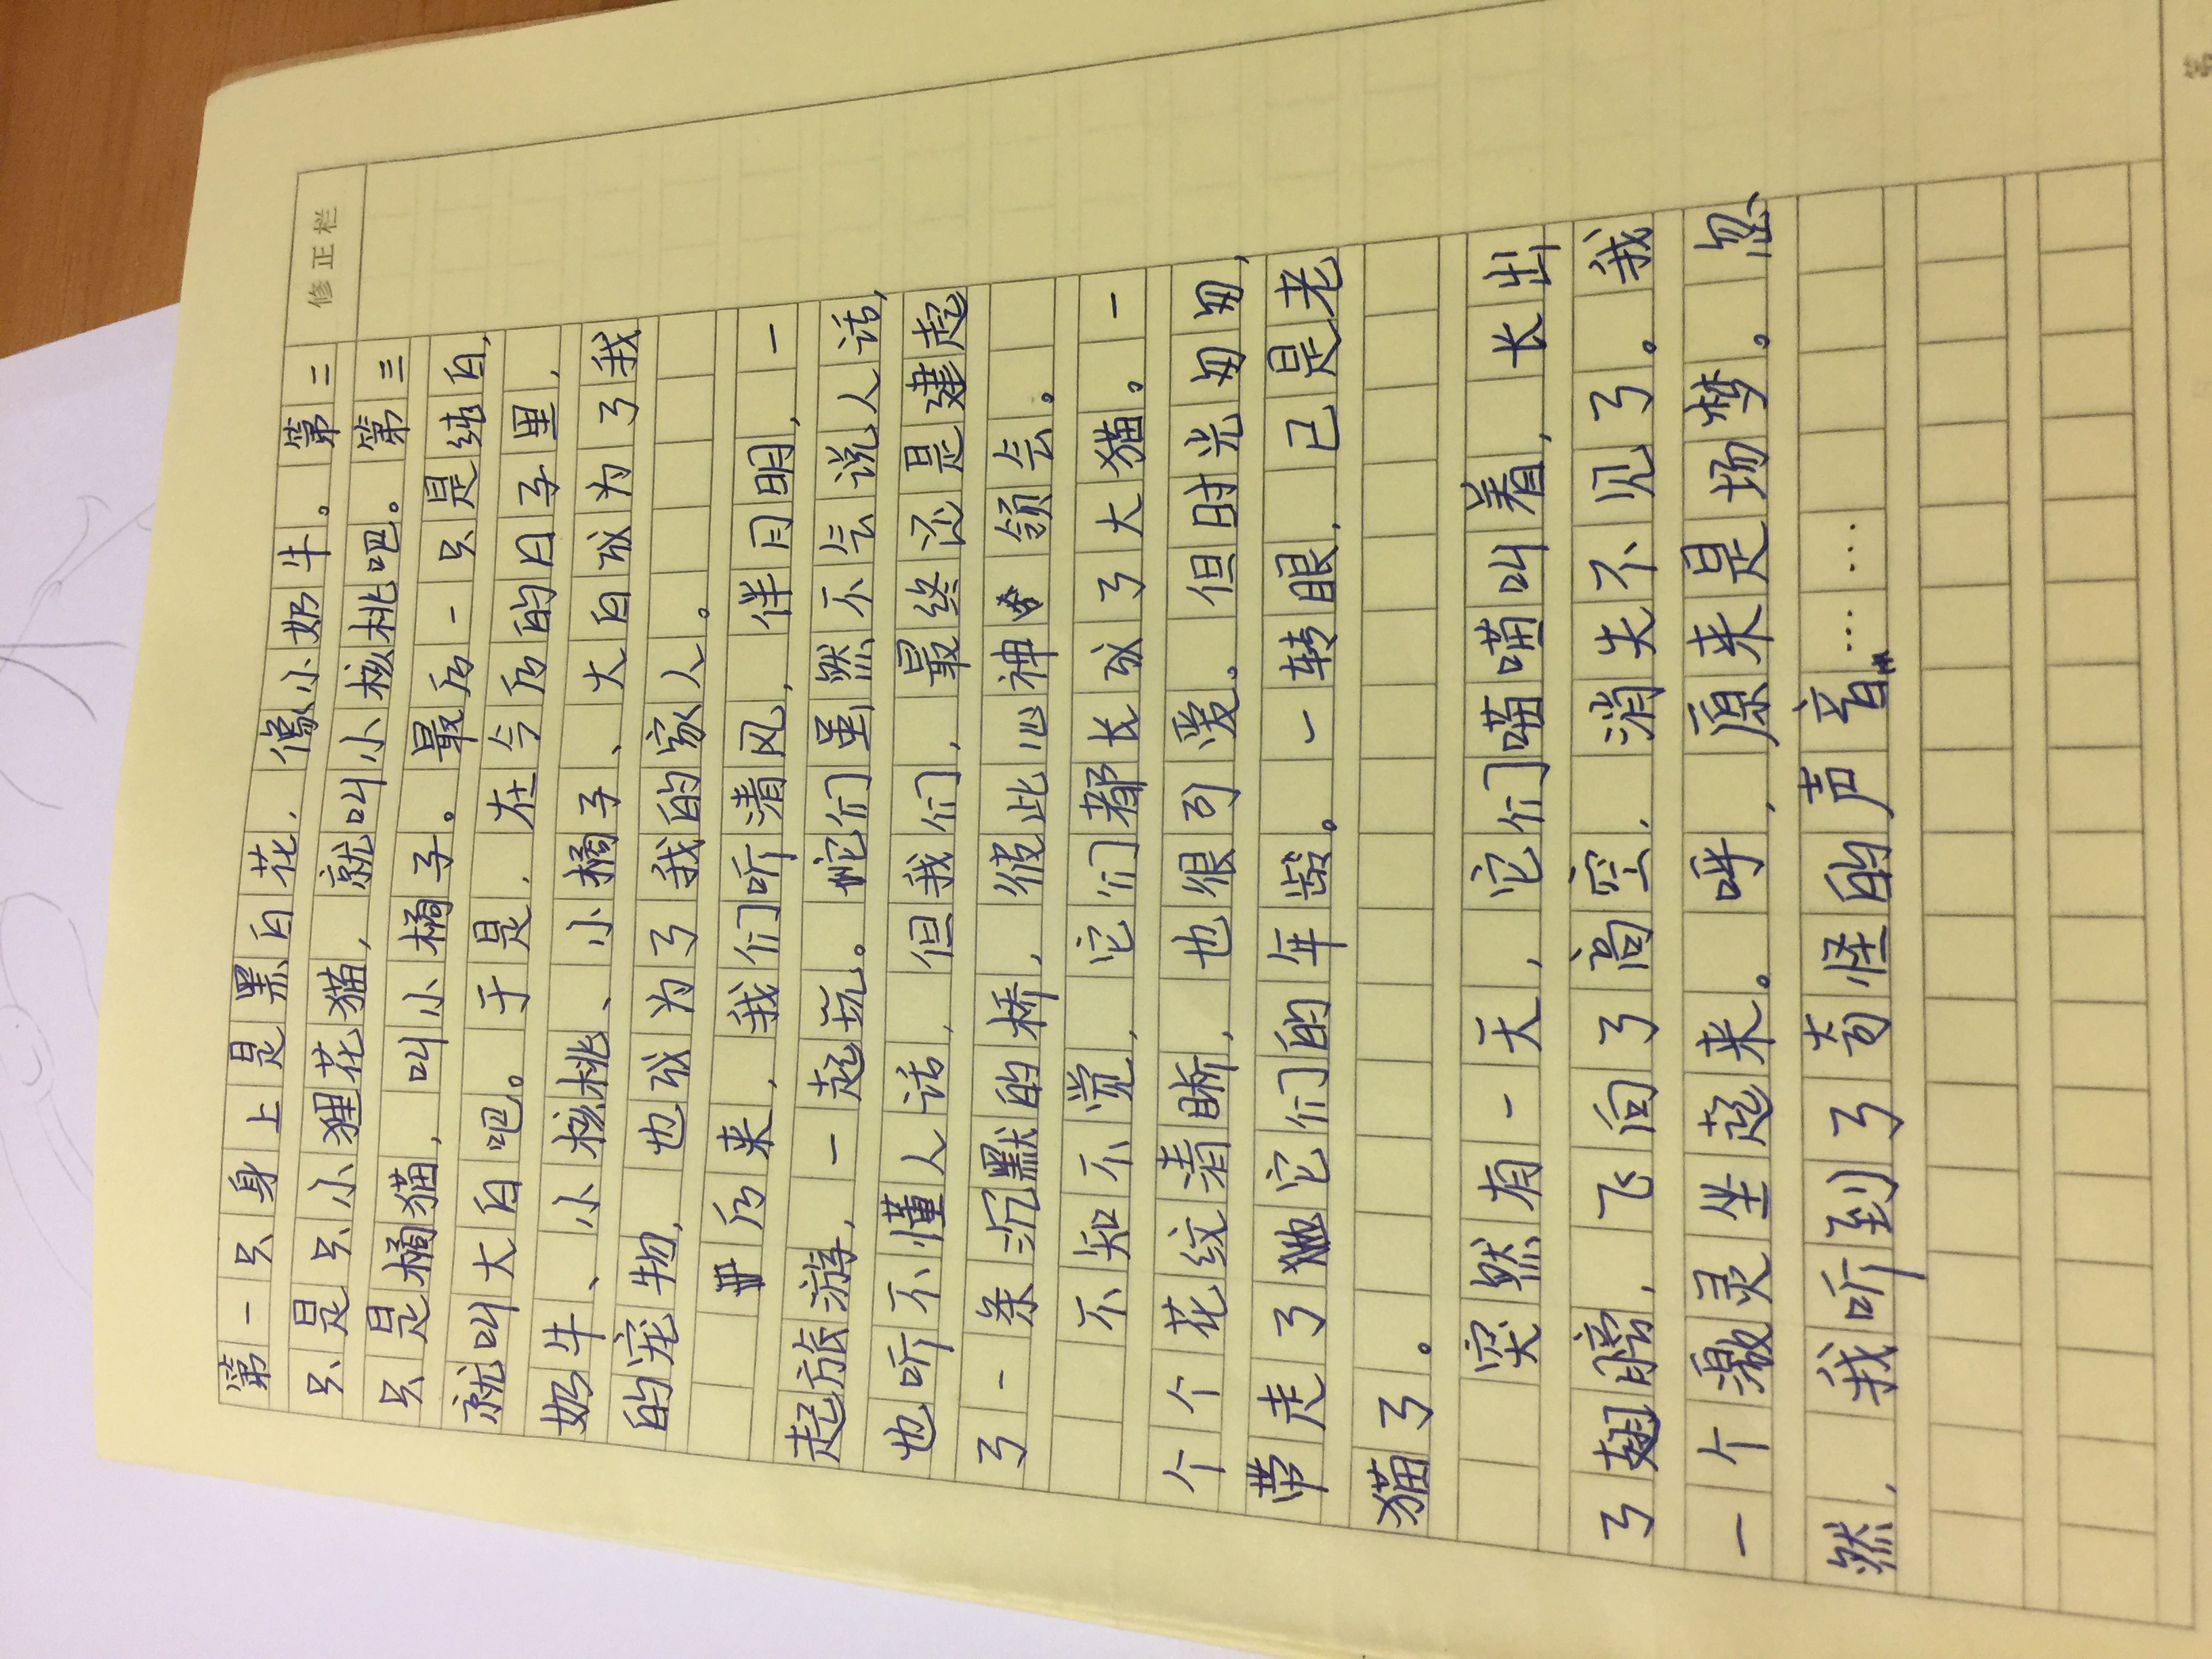 修正栏
第一只身上是黑白花，像小奶牛。第二
只是只小狸花猫，就叫小核桃吧。第三
只是橘猫，叫小橘子。最后一只是纯白，
就叫大白吧。于是，在今后的日子里，
奶牛、小核桃、小橘子、大白成为了我
的宠物，也成为了我的家人。
后来，我们听清风，伴月明，一
起旅游，一起玩。它们虽然不会说人话，
也听不懂人话，但我们，最终还是建起
了一条沉默的桥，彼此心神领会。
不知不觉，它们都长成了大猫。一
个个花纹清晰，也很引爱。但时光匆匆，
带走了它们的年龄。一转眼，已是老
猫了。
突然有一天，它们喵喵叫着，长出
了翅膀，飞向了高空，消失不见了。我
一个激灵坐起来。呼，原来是场梦。忽
然，我听到了奇怪的声音……